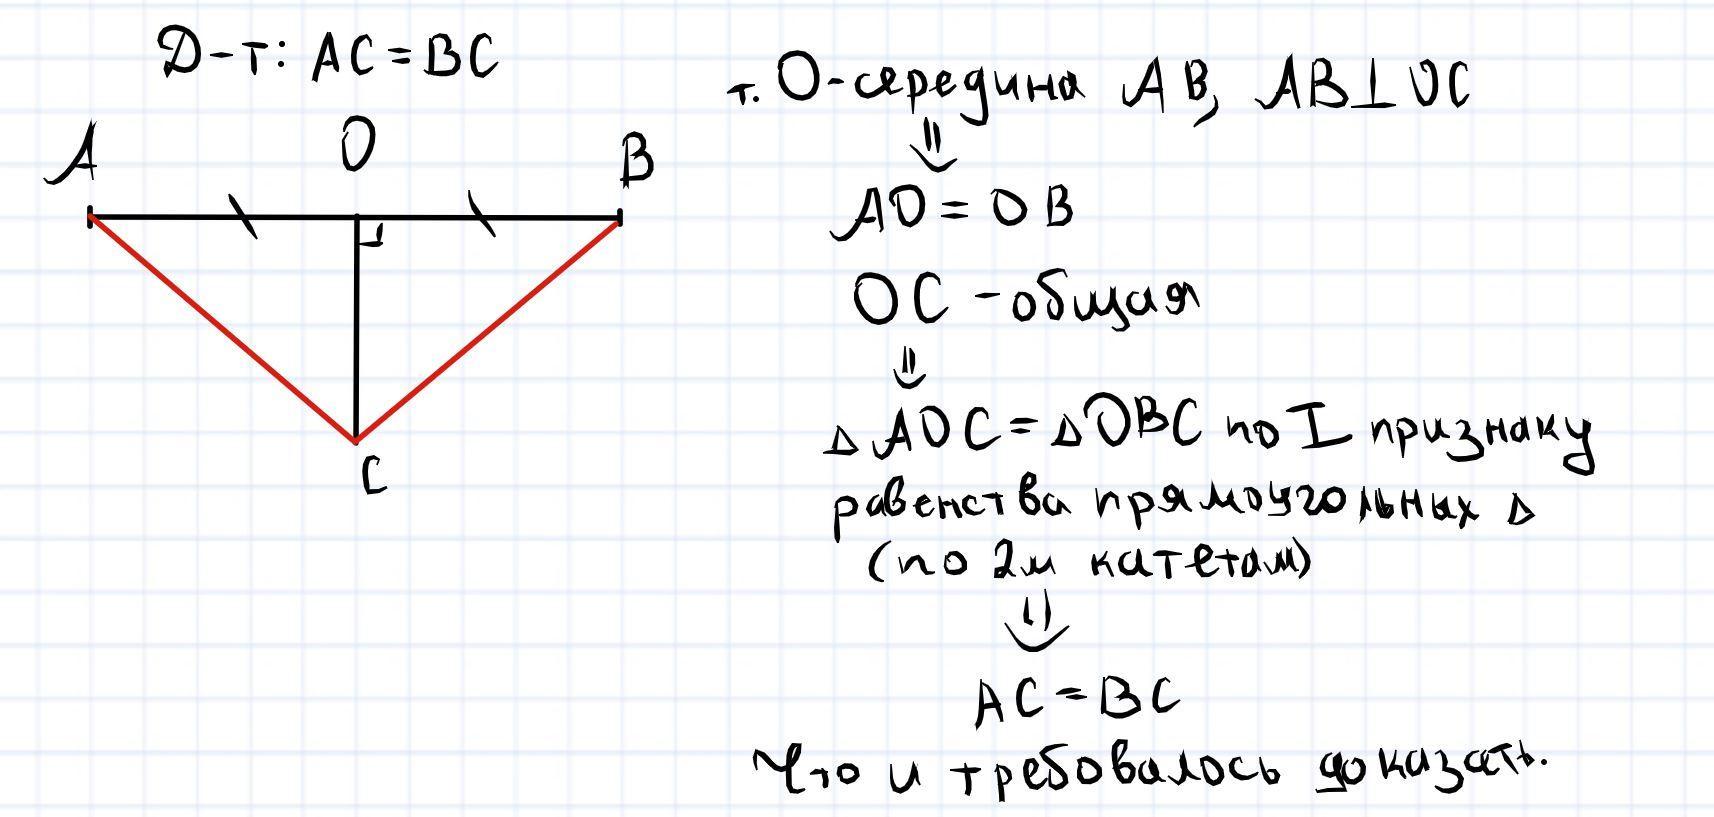 Д-т: AC = BC
A
O
B
C
т. O-середина AB, AB⊥OC
⇓
AO = OB
OC - общая
⇓
△AOC = △OBC по I признаку
равенства прямоугольных △
(по 2м катетам)
⇓
AC = BC
Что и требовалось доказать.